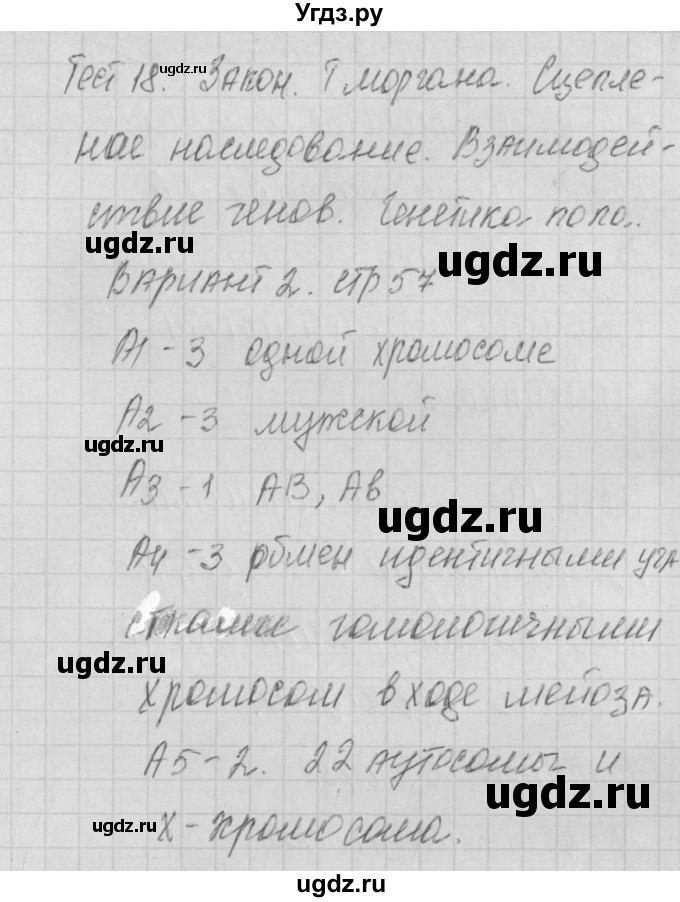 Угдз.ру
Тест 18. Закон. Т моргана. Сцепле-
ное наследование. Взаимодей-
ствие генов. Генетика пола.
Вариант 2. стр 57
А1 - 3 одной хромосоме
А2 - 3 мужской
А3 - 1 АВ, Ав
А4 - 3 обмен идентичными уча
стками гомологичными
хромосом в ходе мейоза.
А5 - 2. 22 аутосомы и
Х - хромосома.
ugdz.ru
ugdz.ru
ugdz.ru
ugdz.ru
ugdz.ru
ugdz.ru
ugdz.ru
ugdz.ru
ugdz.ru
ugdz.ru